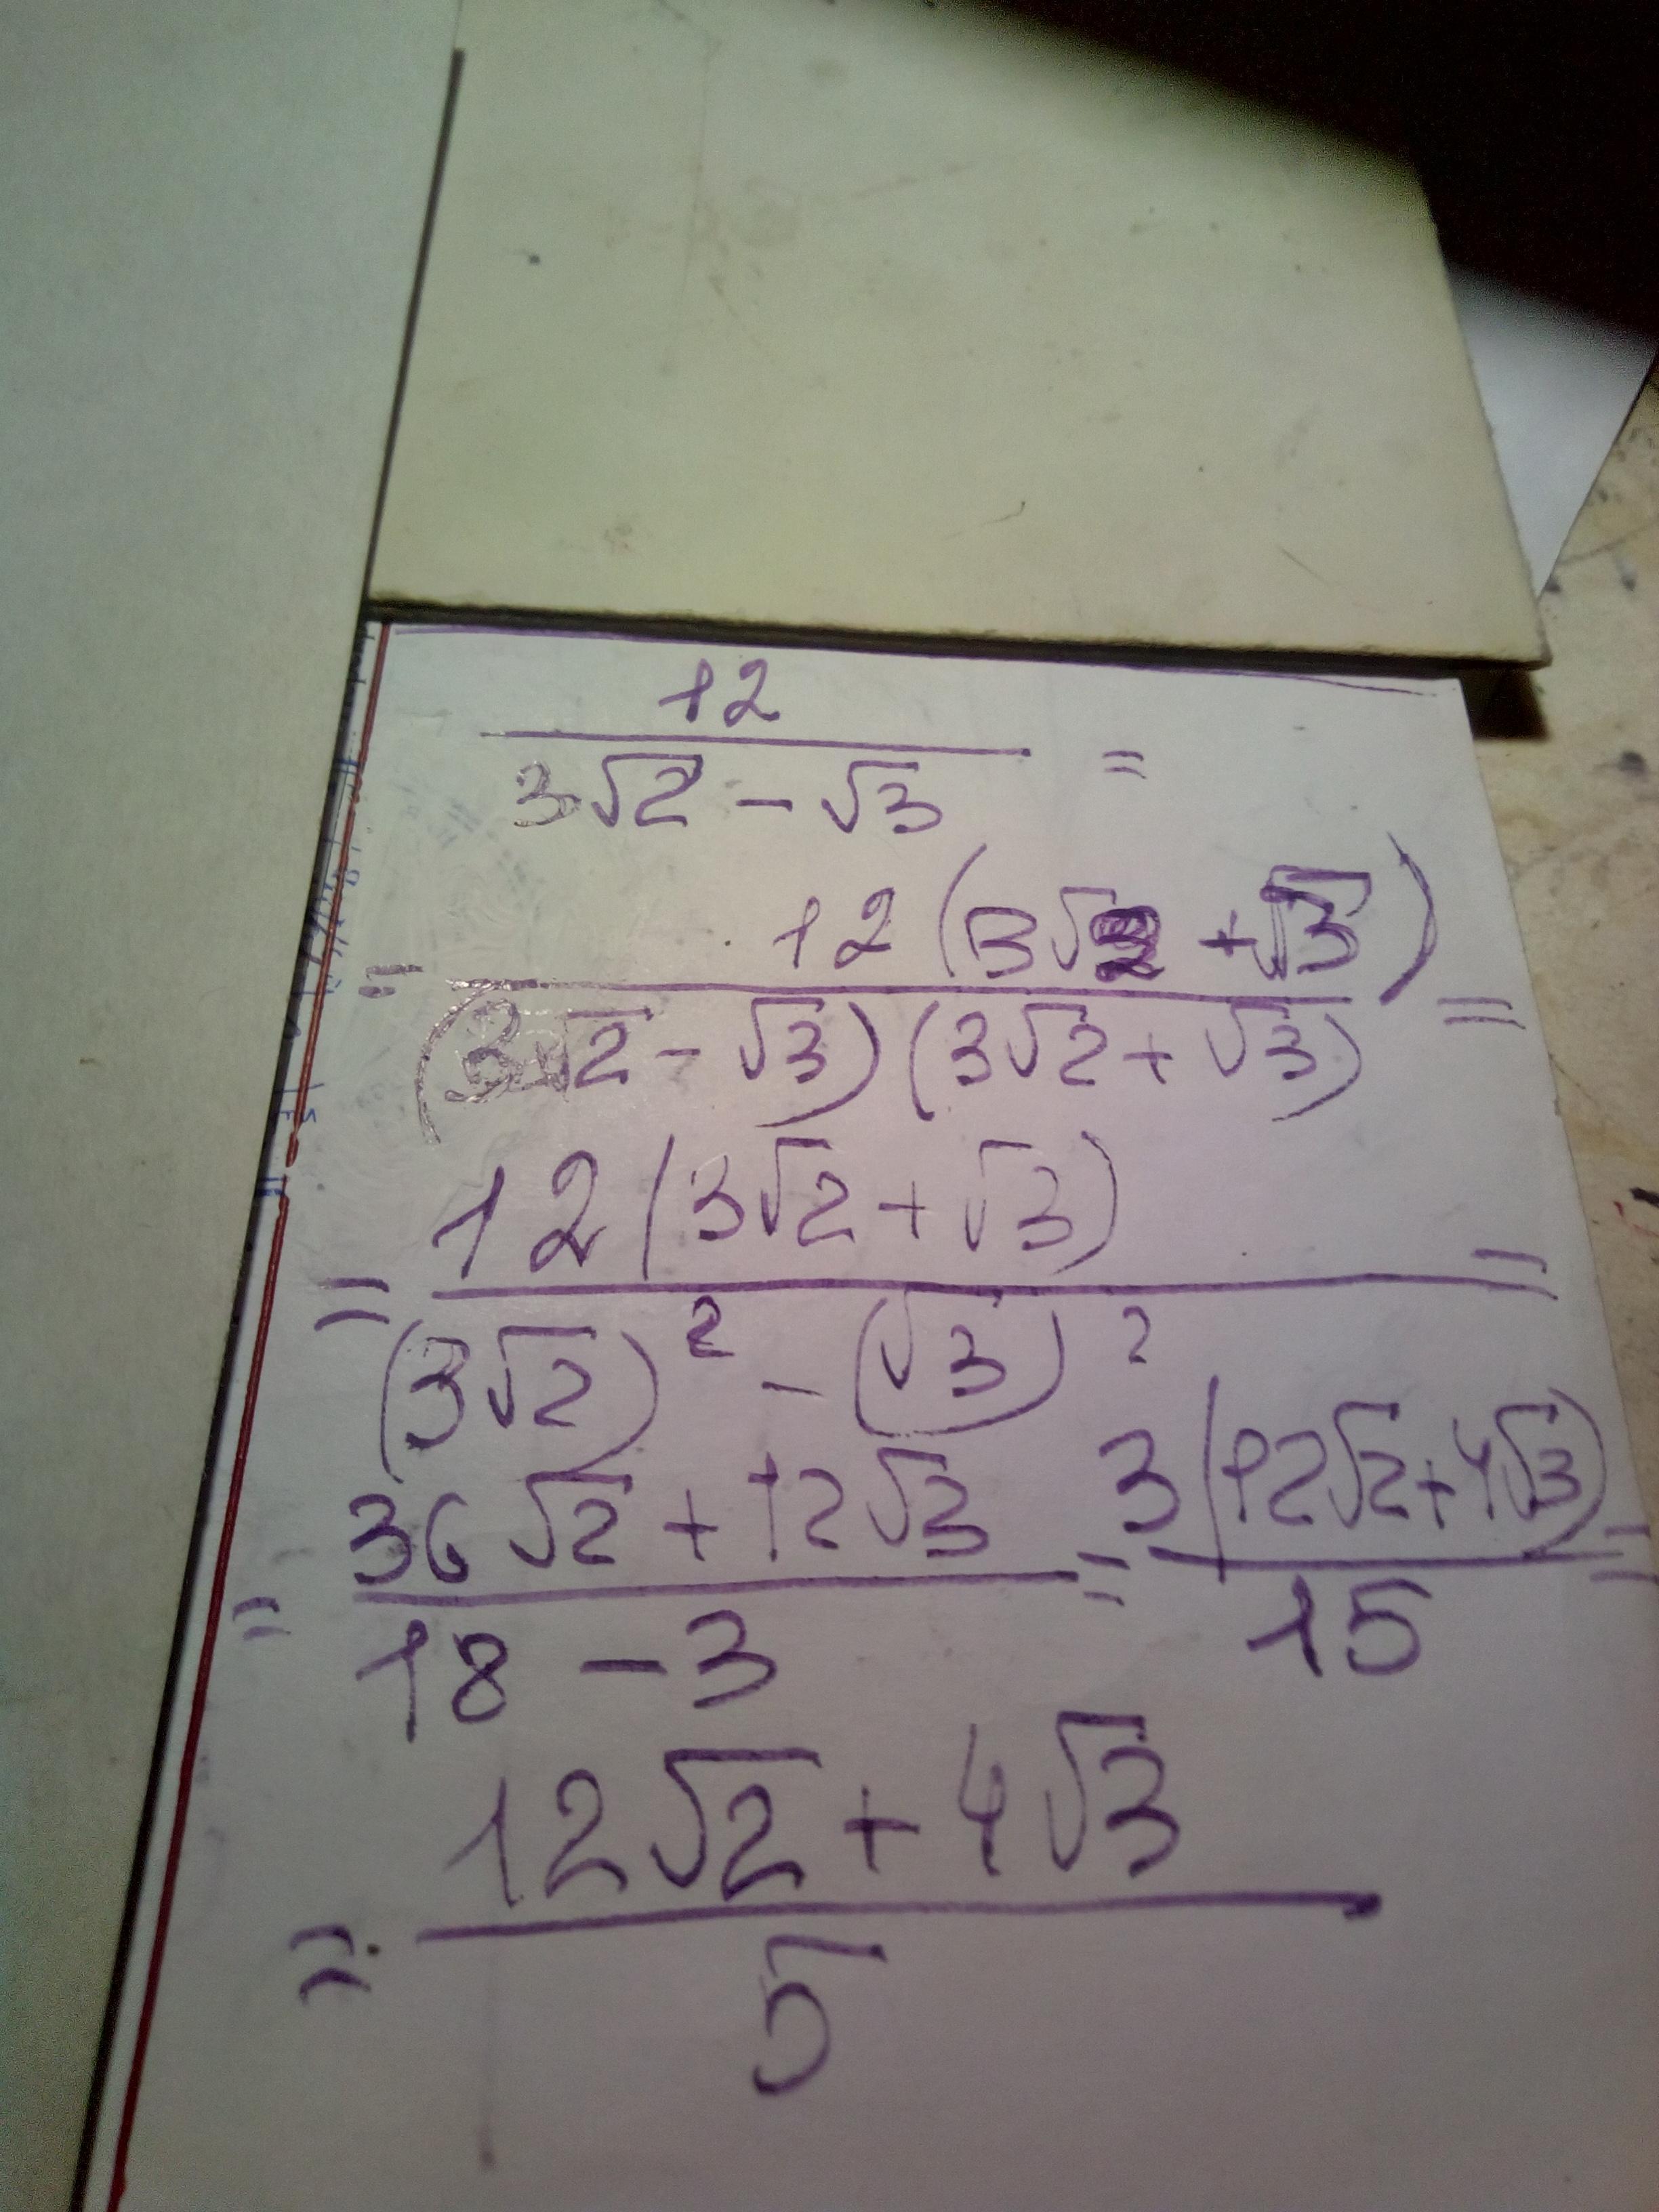 12
3√2 - √3 =
= 12(3√2 + √3)
(3√2 - √3)(3√2 + √3) =
= 12(3√2 + √3) =
(3√2)² - (√3)²
= 36√2 + 12√3 = 3(12√2 + 4√3) =
18 - 3 15
= 12√2 + 4√3
5